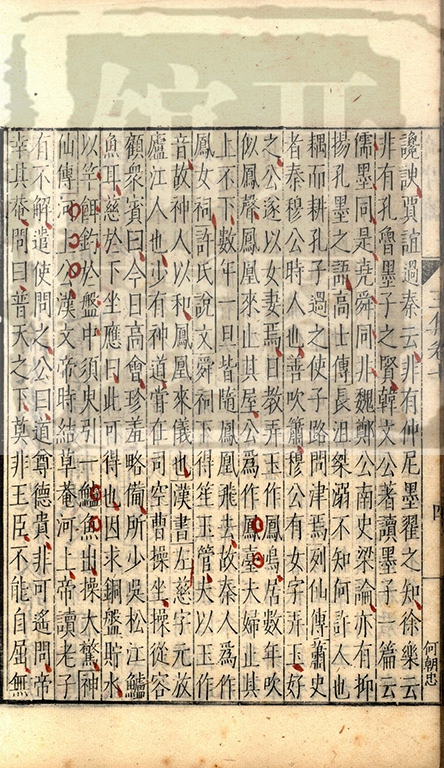 讒諛賈誼過秦云非有仲尼墨翟之知徐樂云
非有孔魯墨子之賢韓文公著讀墨子一篇云
儒墨同是堯舜同非魏鄭公南史梁論亦有抑
揚孔墨之語高士傳長沮桀溺不知何許人也
耦而耕孔子過之使子路問津焉列仙傳蕭史
者秦穆公時人也善吹簫穆公有女字弄玉好
之公遂以女妻焉日教弄玉作鳳鳴居數年吹
似鳳聲鳳凰來止其屋公爲作鳳臺夫婦止其
上不下數年一旦皆隨鳳凰飛去故秦人爲作
鳳女祠許氏說文舜祠下得笙玉管夫以玉作
音故神人以和鳳凰來儀也漢書左慈字元放
廬江人也少有神道嘗在司空曹操坐操從容
顧衆賓曰今日高會珍羞略備所少吳松江鱸
魚耳慈於下坐應曰此可得也因求銅盤貯水
以竿餌釣於盤中須臾引一鱸魚出操大驚神
仙傳河上公漢文帝時結草菴河上帝讀老子
有不解遣使問之公曰道尊德貴非可遙問帝
幸其菴問曰普天之下莫非王臣不能自屈無
四
何朝忠